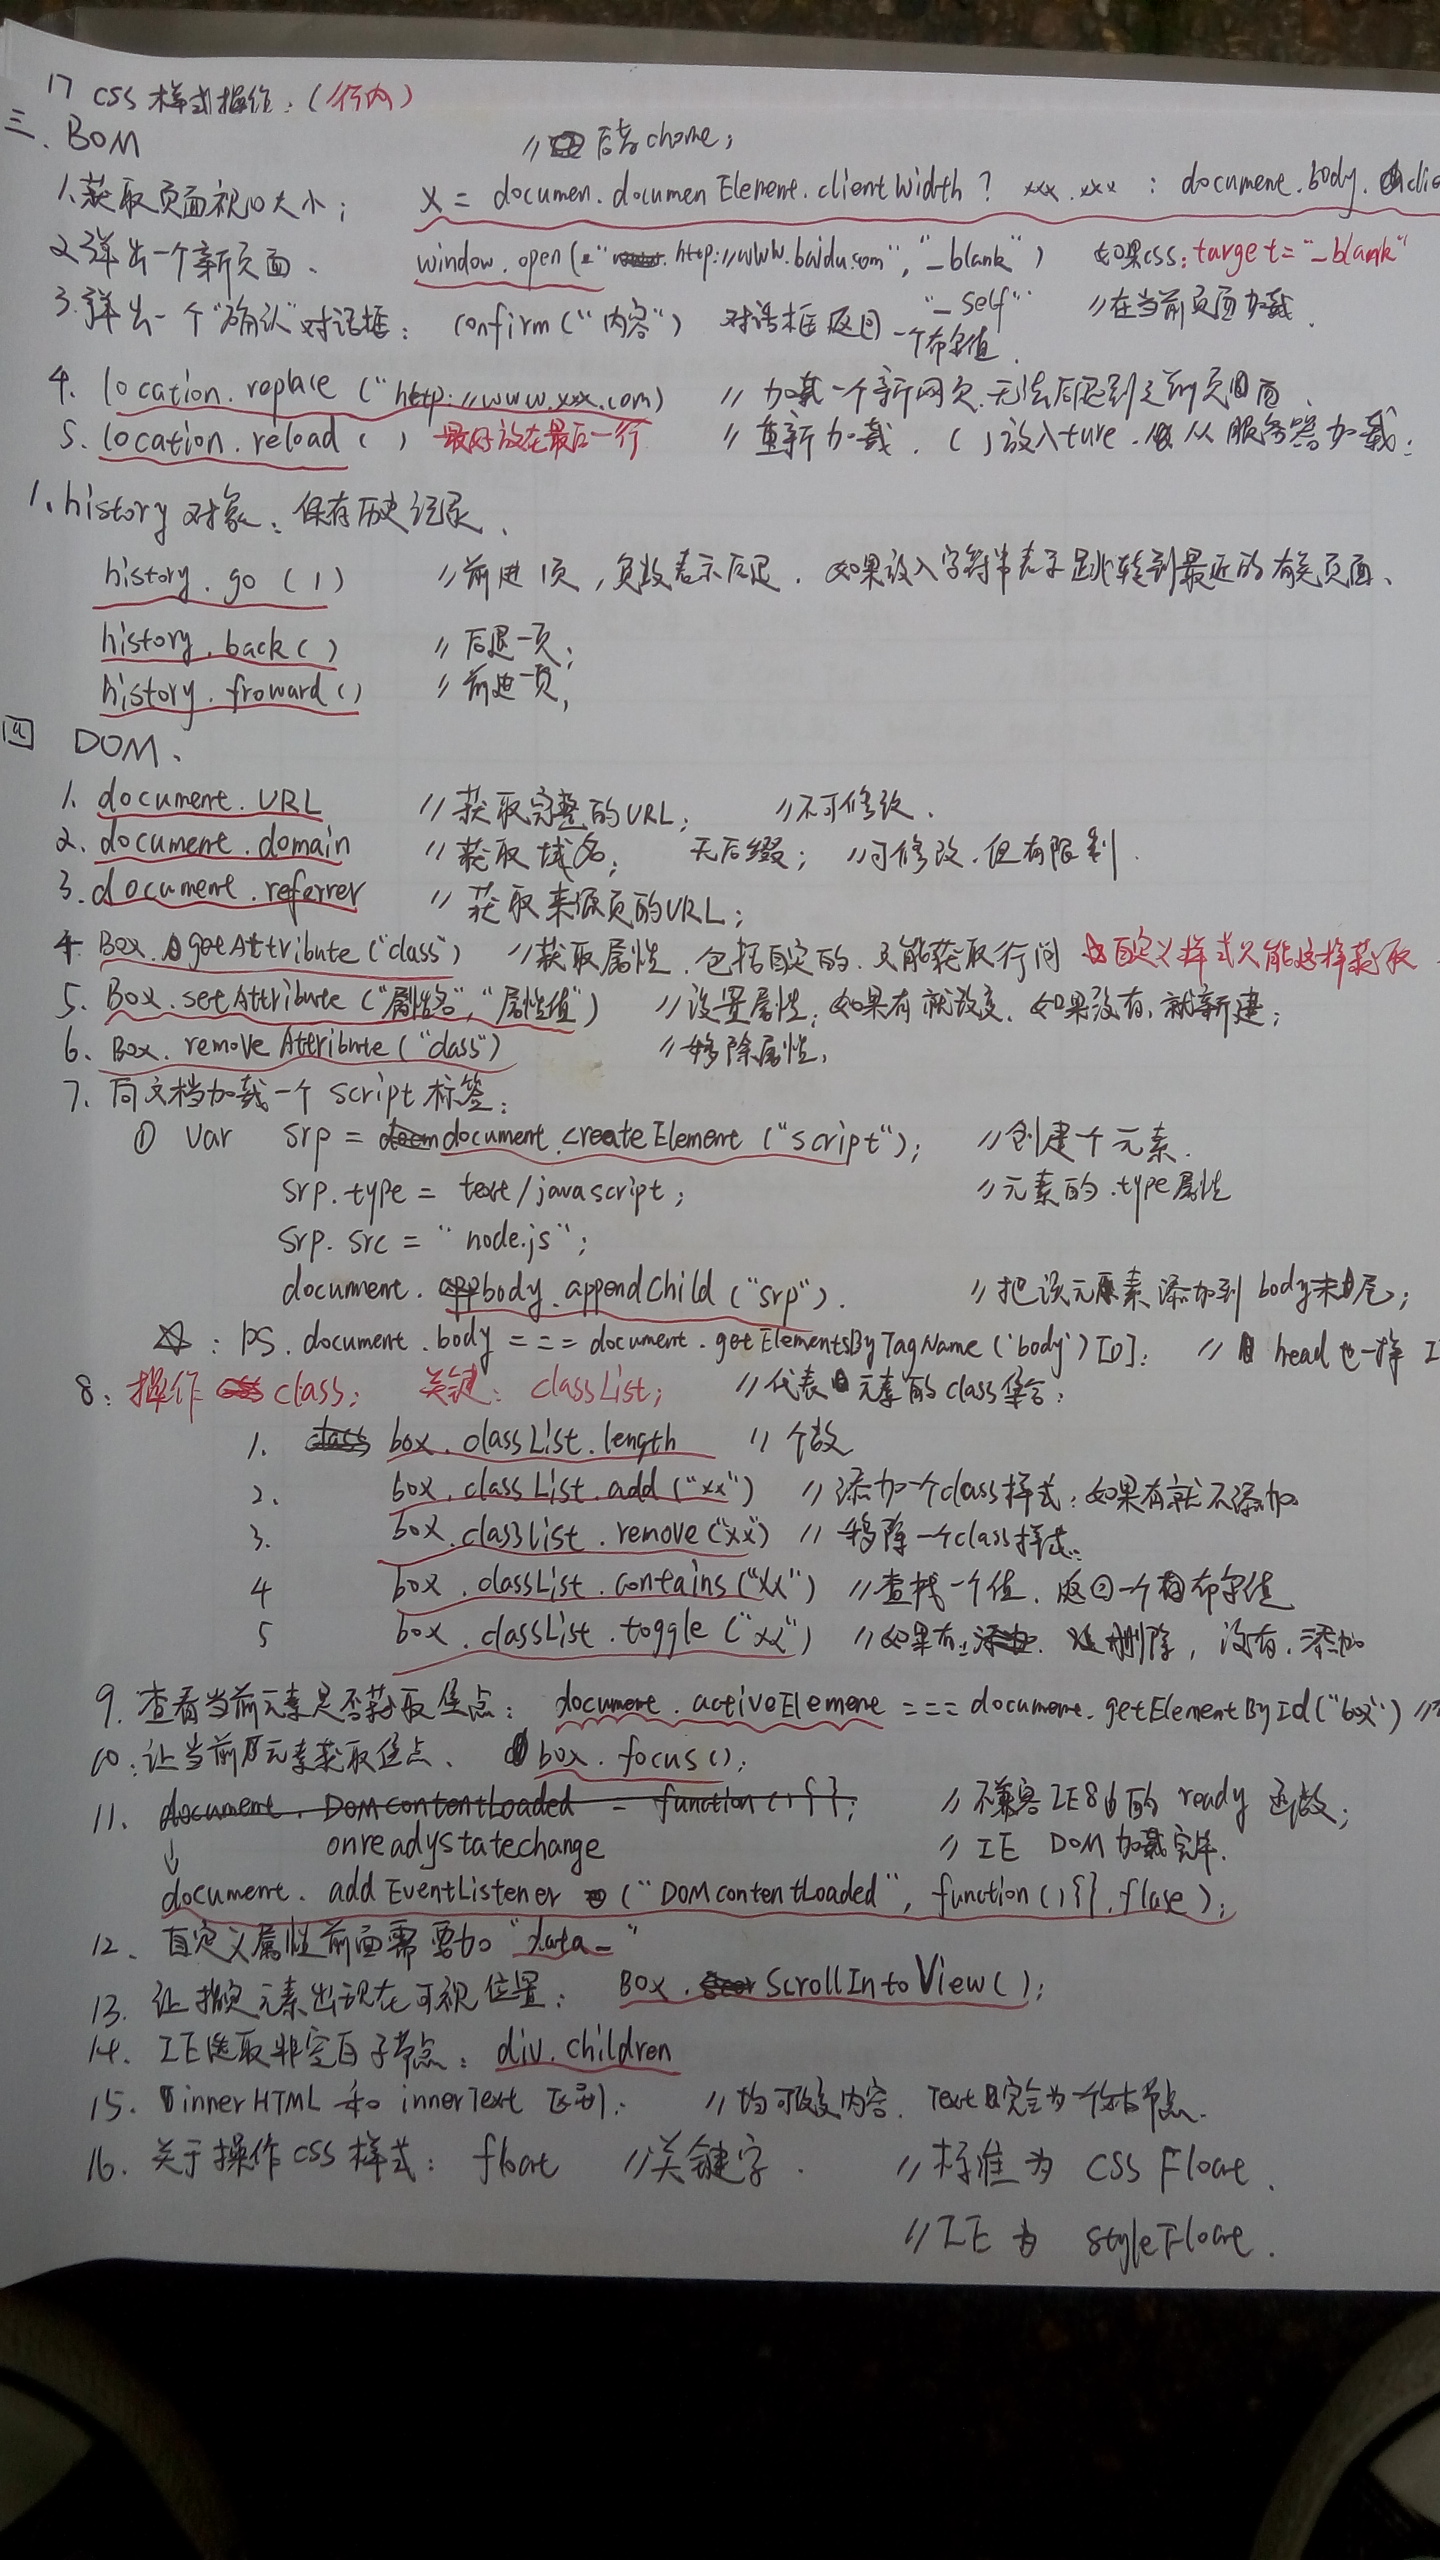 17 CSS 样式操作:(行内)
三、BOM //后者chome;
1.获取页面视口大小; X = documen.documenElement.clientWidth? xxx.xxx : document.body.clie
2.弹出一个新页面、 window.open("http://www.baidu.com","_blank") 如果css:target="_blank"
3.弹出一个"确认"对话框: confirm("内容") 对话框返回一个布尔值. "_self" //在当前页面加载.
4. location.replace("http://www.xxx.com) //加载一个新网页.无法后退到之前页面.
5. location.reload() 最好放在最后一行 //重新加载.()放入ture.从服务器加载;
1.history对象:保存历史记录.
history.go(1) //前进1页,负数表示后退.如果放入字符串表示跳转到最近的有关页面、
history.back() //后退一页;
history.froward() //前进一页,
四 DOM、
1. document.URL //获取完整的URL; //不可修改.
2. document.domain //获取域名; 无后缀; //可修改.但有限制.
3. document.referrer //获取来源页的URL;
4. Box.getAttribute("class") //获取属性.包括自定的.只能获取行间 自定义样式只能这样获取
5. Box.setAttribute("属性名","属性值") //设置属性;如果有就改变.如果没有,就新建;
6、Box.removeAttribute("class") //移除属性,
7、向文档加载一个script标签:
① var srp = document.createElement("script"); //创建个元素.
srp.type = text/javascript; //元素的.type属性
srp.src = "node.js";
document.body.appendChild("srp"). //把该元素添加到body末尾;
☆:PS.document.body === document.getElementsByTagName('body')[0]; //head也一样
8:操作class; 关键:classList; //代表元素的class集合;
1. box.classList.length //个数
2. box.classList.add("xx") //添加一个class样式;如果有就不添加
3. box.classList.remove("xx") //移除一个class样式.
4 box.classList.contains("xx") //查找一个值.返回一个布尔值
5 box.classList.toggle("xx") //如果有,删除,没有.添加
9.查看当前元素是否获取焦点: document.activeElement === document.getElementById("box") //
10:让当前元素获取焦点、 box.focus();
11. document.DOMcontentLoaded = function(){}; //不兼容IE8的ready函数;
onreadystatechange //IE DOM加载完毕.
↓ document.addEventListener("DOMcontentLoaded",function(){}.flase);
12、自定义属性前面需要加"data-"
13.让指定元素出现在可视位置: Box.ScrollIntoView();
14.IE选取非空白子节点: div.children
15. innerHTML和innerText区别: //均可改变内容.Text完全为一个节点.
16.关于操作CSS样式: float //关键字. //标准为 CSSFloat.
//IE为 styleFloat.